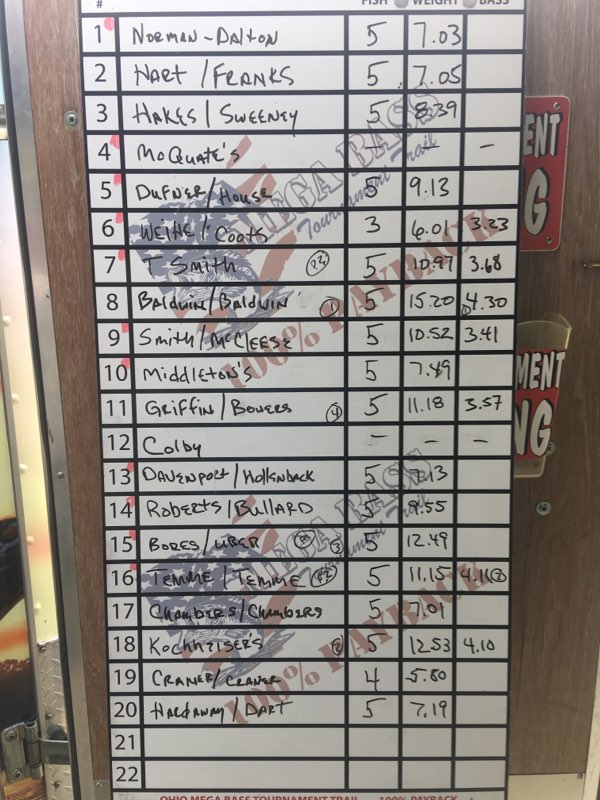 # FISH WEIGHT BASS
1 NORMAN-DALTON 5 7.03
2 HART/FRANKS 5 7.05
3 HAKES/SWEENEY 5 8.39
4 McQUATE'S – – –
5 DUFNER/HOUSE 5 9.13
6 WEIHL/COOTS 3 6.01 3.23
7 T SMITH 5 10.97 3.68
8 BALDWIN/BALDWIN 1 5 15.20 1 4.30
9 SMITH/McCLEESE 5 10.52 3.41
10 MIDDLETON'S 5 7.49
11 GRIFFIN/BOWERS 4 5 11.18 3.57
12 COLBY – – –
13 DAVENPORT/HOLLENBACK 5 7.13
14 ROBERTS/BULLARD 5 9.55
15 BORES/UBER 3 5 12.49
16 TEMME/TEMME 5 11.15 4.11 2
17 CHAMBERS/CHAMBERS 5 7.01
18 KOCHHEISER'S 2 5 12.53 4.10
19 CRANER/CRANER 4 5.80
20 HARDAWAY/DART 5 7.19
21
22
MEGA BASS
Tournament Trail
100% PAYBACK
MEGA BASS
Tournament Trail
100% PAYBACK
ENT
G
MENT
NG
OHIO MEGA BASS TOURNAMENT TRAIL 100% PAYBACK